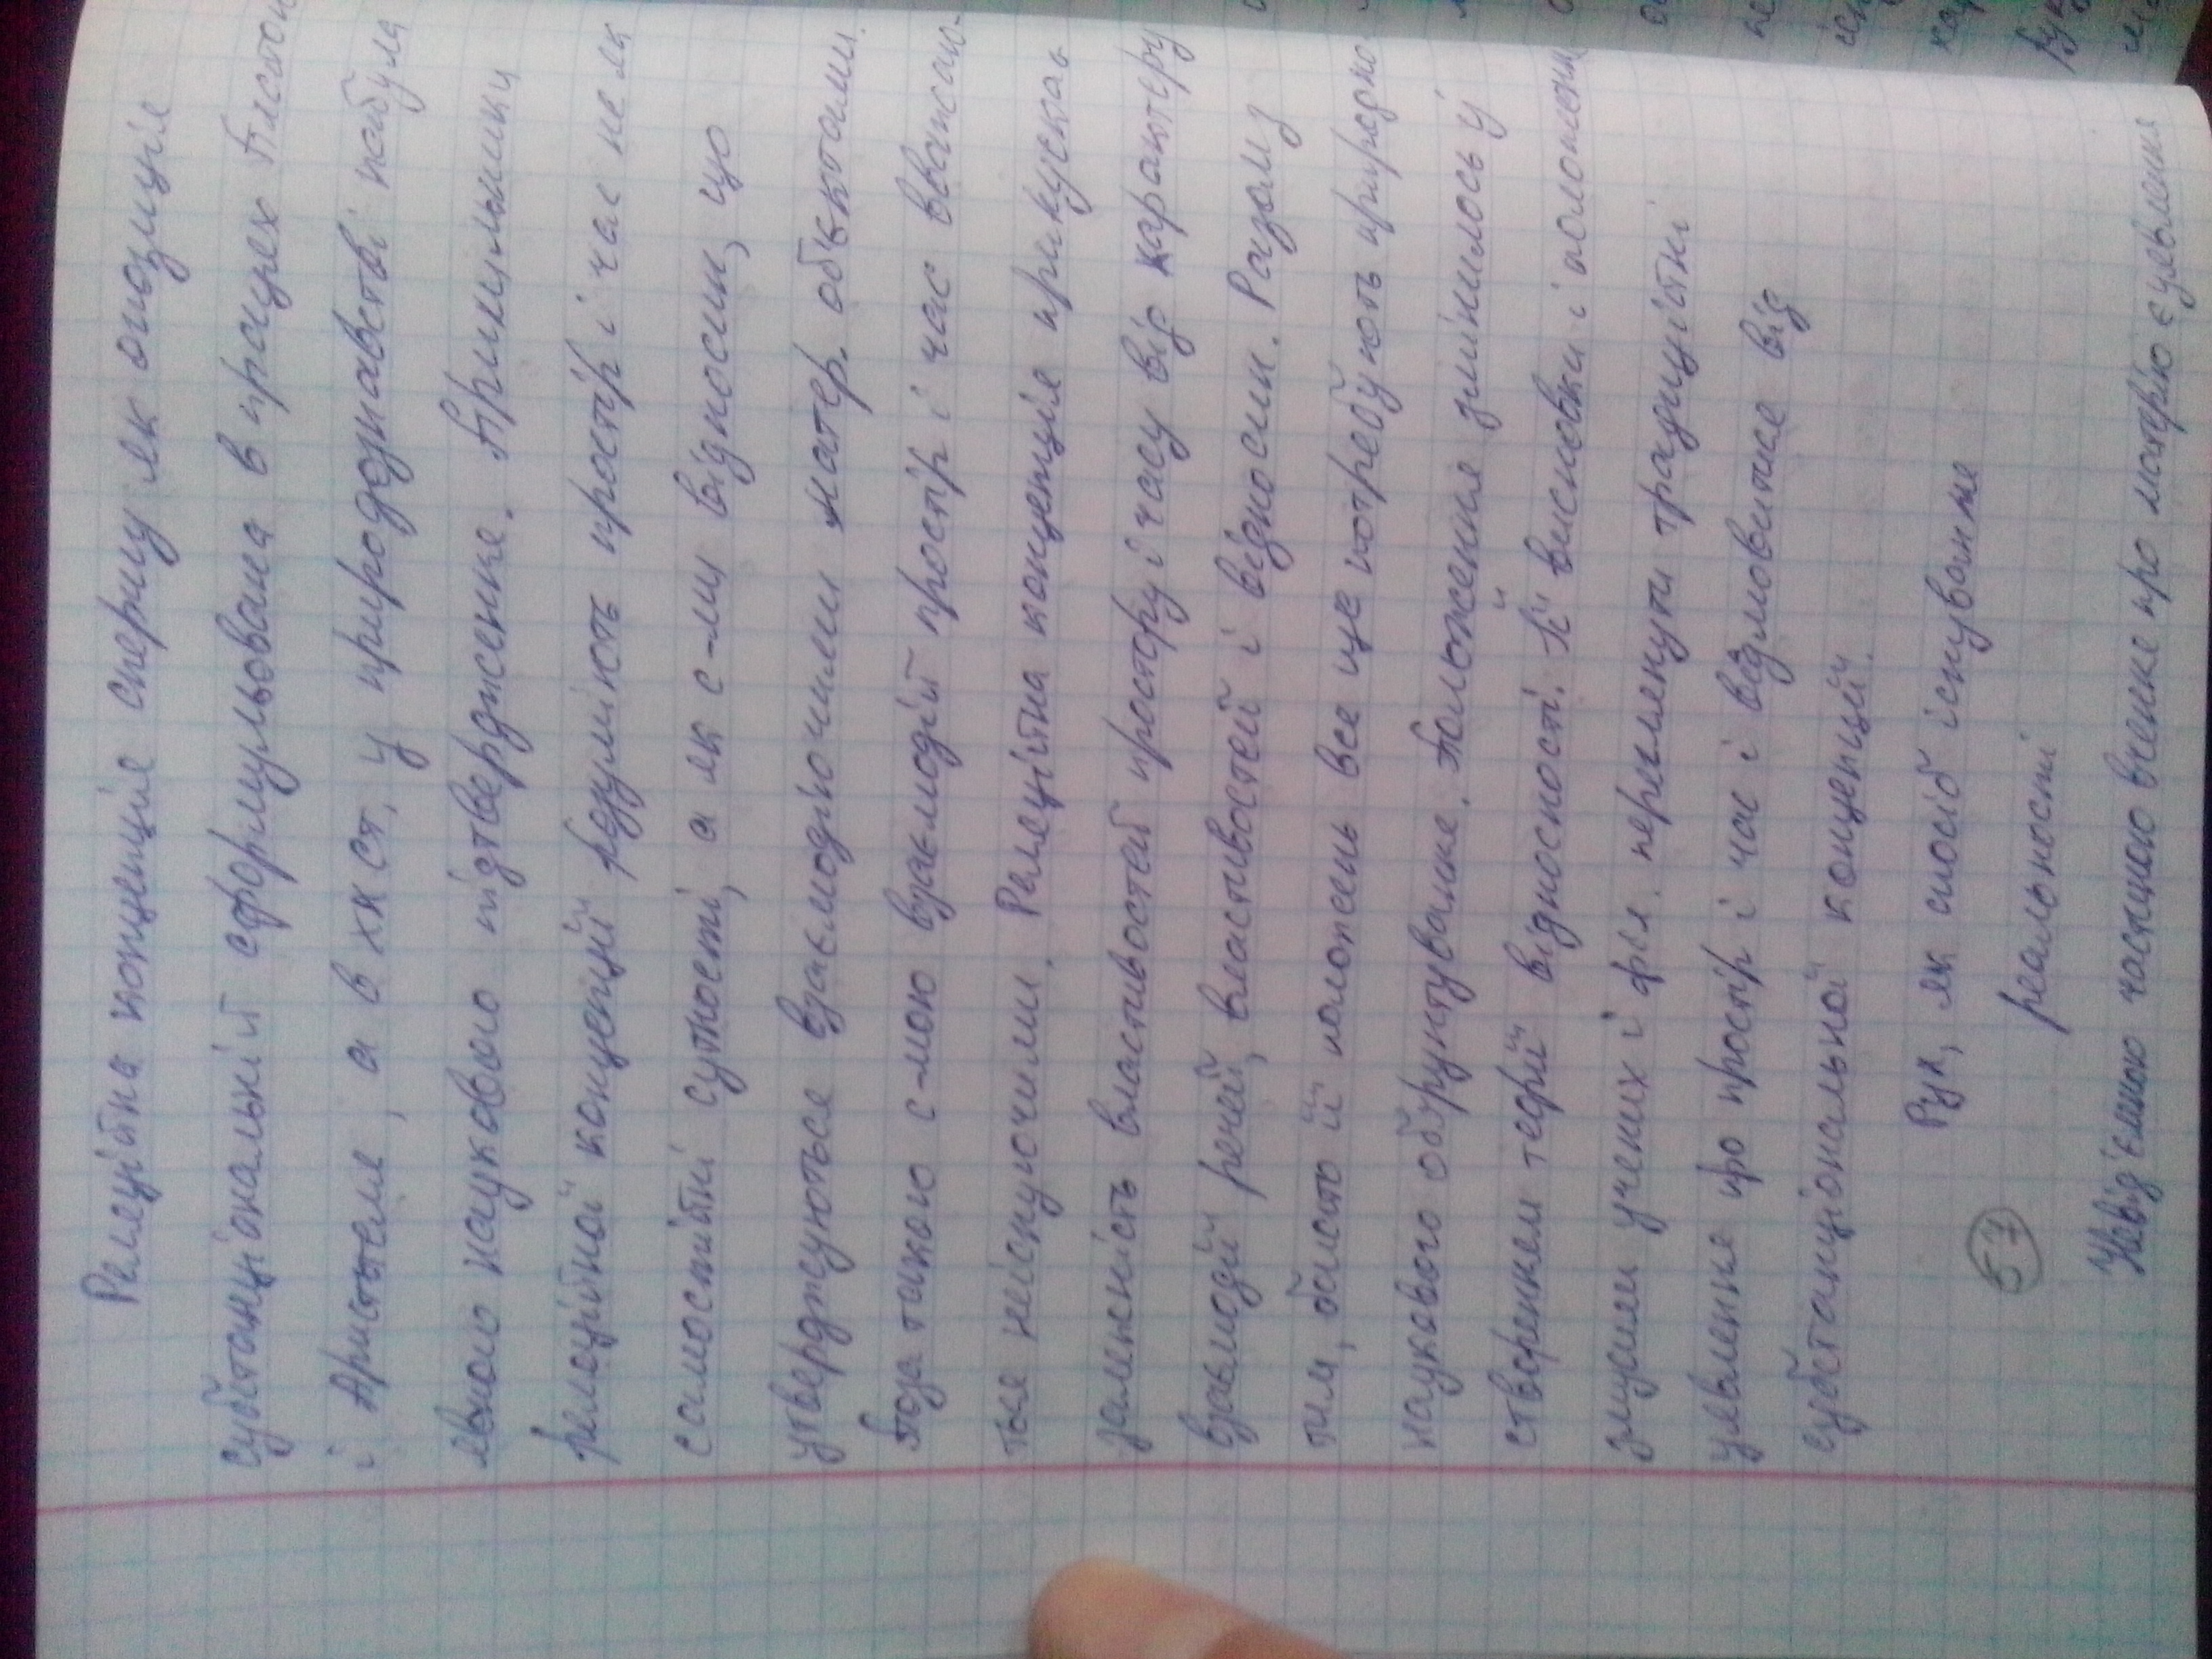 Реляційна концепція спершу як опозиція
субстанціональній сформульована в працях Платон
і Аристотеля, а в ХХ ст. у природознавстві набула
явного наукового підтвердження. Прихильники
реляційної концепції розуміють простір і час не як
самостійні сутності, а як с-ми відносин, що
утверджуються взаємодіючими матер. об'єктами.
Поза такою с-мою взаємодій простір і час вважаю-
ться неіснуючими. Реляційна концепція припускає
залежність властивостей простору і часу від характеру
взаємодії речей, властивостей і відносин. Разом з
тим, багато її положень все ще потребують природно
наукового обґрунтування. Положення змінилось у
створенням теорії відносності. Її висновки і положення
змусили учених і філ. переглянути традиційні
уявлення про простір і час і відмовитися від
субстанціональної концепції.
Рух, як спосіб існування
57
реальності
Невід'ємною частиною вчення про матерію є уявлення